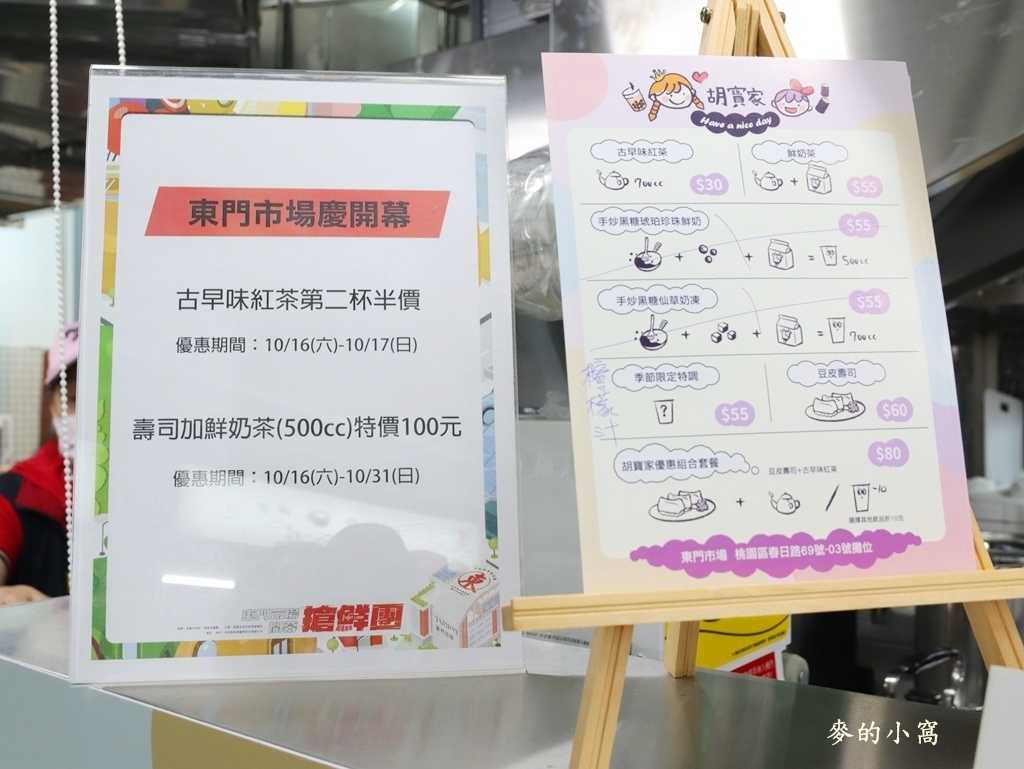 東門市場慶開幕
古早味紅茶第二杯半價
優惠期間：10/16(六)-10/17(日)
壽司加鮮奶茶(500cc)特價100元
優惠期間：10/16(六)-10/31(日)
東門市場
開幕
搶鮮團
東
胡寶家
Have a nice day
古早味紅茶
700cc
$30
鮮奶茶
+
$55
手炒黑糖琥珀珍珠鮮奶
$55
+ + = 500cc
手炒黑糖仙草奶凍
$55
+ + = 700cc
檸檬汁
季節限定特調
?
$55
豆皮壽司
$60
胡寶家優惠組合套餐
豆皮壽司+古早味紅茶
$80
+ / -10
選購其他飲品折10元
東門市場 桃園區春日路69號-03號攤位
麥的小窩